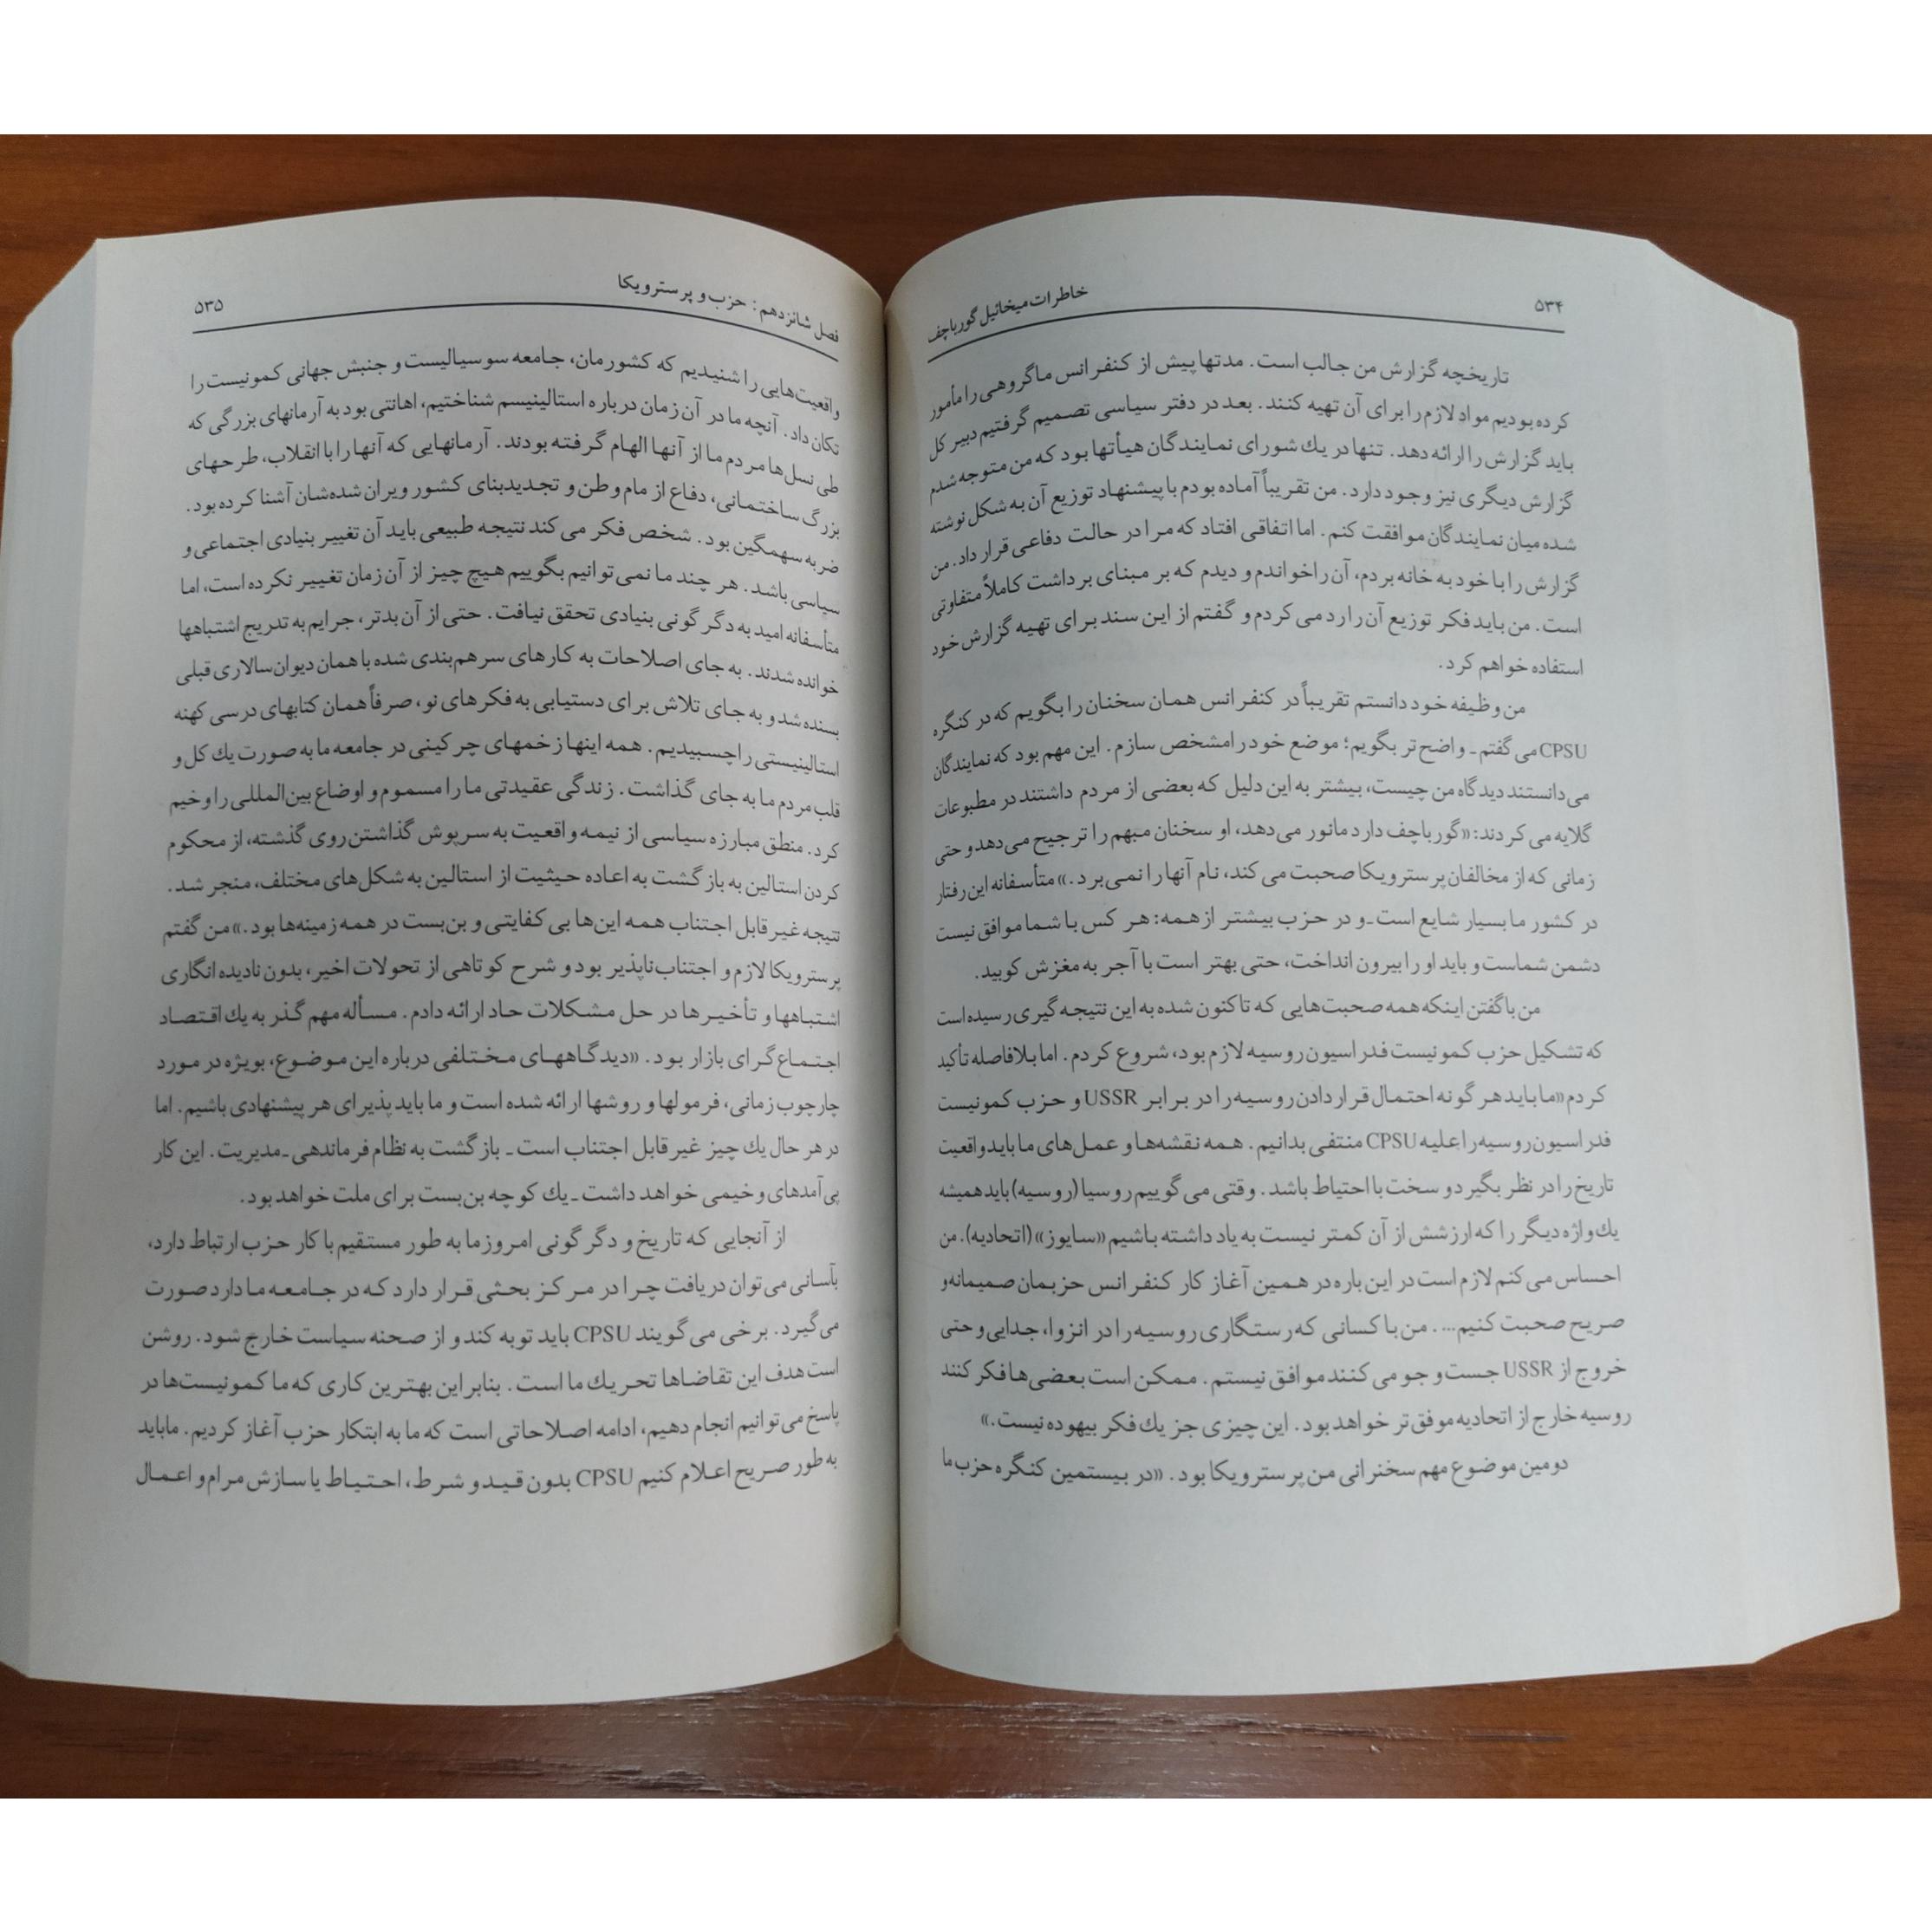 ۵۳۴
خاطرات میخائیل گورباچف
تاریخچه گزارش من جالب است. مدتها پیش از کنفرانس ما گروهی را مأمور
کرده بودیم مواد لازم را برای آن تهیه کنند. بعد در دفتر سیاسی تصمیم گرفتیم دبیر کل
باید گزارش را ارائه دهد. تنها در یك شورای نمایندگان هیأتها بود که من متوجه شدم
گزارش دیگری نیز وجود دارد. من تقریباً آماده بودم با پیشنهاد توزیع آن به شکل نوشته
شده میان نمایندگان موافقت کنم. اما اتفاقی افتاد که مرا در حالت دفاعی قرار داد. من
گزارش را با خود به خانه بردم، آن را خواندم و دیدم که بر مبنای برداشت کاملاً متفاوتی
است. من باید فکر توزیع آن را رد می‌کردم و گفتم از این سند برای تهیه گزارش خود
استفاده خواهم کرد.
من وظیفه خود دانستم تقریباً در کنفرانس همان سخنان را بگویم که در کنگره
CPSU می‌گفتم ـ واضح‌تر بگویم؛ موضع خود را مشخص سازم. این مهم بود که نمایندگان
می‌دانستند دیدگاه من چیست، بیشتر به این دلیل که بعضی از مردم داشتند در مطبوعات
گلایه می‌کردند: «گورباچف دارد مانور می‌دهد، او سخنان مبهم را ترجیح می‌دهد و حتی
زمانی که از مخالفان پرسترویکا صحبت می‌کند، نام آنها را نمی‌برد.» متأسفانه این رفتار
در کشور ما بسیار شایع است ـ و در حزب بیشتر از همه: هر کس با شما موافق نیست
دشمن شماست و باید او را بیرون انداخت، حتی بهتر است با آجر به مغزش کوبید.
من با گفتن اینکه همه صحبت‌هایی که تاکنون شده به این نتیجه‌گیری رسیده است
که تشکیل حزب کمونیست فدراسیون روسیه لازم بود، شروع کردم. اما بلافاصله تأکید
کردم «ما باید هر گونه احتمال قرار دادن روسیه را در برابر USSR و حزب کمونیست
فدراسیون روسیه را علیه CPSU منتفی بدانیم. همه نقشه‌ها و عمل‌های ما باید واقعیت
تاریخ را در نظر بگیرد و سخت با احتیاط باشد. وقتی می‌گوییم روسیا (روسیه) باید همیشه
یك واژه دیگر را که ارزشش از آن کمتر نیست به یاد داشته باشیم «سایوز» (اتحادیه). من
احساس می‌کنم لازم است در این باره در همین آغاز کار کنفرانس حزبمان صمیمانه و
صریح صحبت کنیم.... من با کسانی که رستگاری روسیه را در انزوا، جدایی و حتی
خروج از USSR جست و جو می‌کنند موافق نیستم. ممکن است بعضی‌ها فکر کنند
روسیه خارج از اتحادیه موفق‌تر خواهد بود. این چیزی جز یك فکر بیهوده نیست.»
دومین موضوع مهم سخنرانی من پرسترویکا بود. «در بیستمین کنگره حزب ما
فصل شانزدهم: حزب و پرسترویکا
۵۳۵
واقعیت‌هایی را شنیدیم که کشورمان، جامعه سوسیالیست و جنبش جهانی کمونیست را
تکان داد. آنچه ما در آن زمان درباره استالینیسم شناختیم، اهانتی بود به آرمانهای بزرگی که
طی نسل‌ها مردم ما از آنها الهام گرفته بودند. آرمانهایی که آنها را با انقلاب، طرحهای
بزرگ ساختمانی، دفاع از مام وطن و تجدیدبنای کشور ویران شده‌شان آشنا کرده بود.
ضربه سهمگین بود. شخص فکر می‌کند نتیجه طبیعی باید آن تغییر بنیادی اجتماعی و
سیاسی باشد. هر چند ما نمی‌توانیم بگوییم هیچ چیز از آن زمان تغییر نکرده است، اما
متأسفانه امید به دگرگونی بنیادی تحقق نیافت. حتی از آن بدتر، جرایم به تدریج اشتباهها
خوانده شدند. به جای اصلاحات به کارهای سرهم‌بندی شده با همان دیوان‌سالاری قبلی
بسنده شد و به جای تلاش برای دستیابی به فکرهای نو، صرفاً همان کتابهای درسی کهنه
استالینیستی را چسبیدیم. همه اینها زخمهای چرکینی در جامعه ما به صورت یك کل و
قلب مردم ما به جای گذاشت. زندگی عقیدتی ما را مسموم و اوضاع بین‌المللی را وخیم
کرد. منطق مبارزه سیاسی از نیمه واقعیت به سرپوش گذاشتن روی گذشته، از محکوم
کردن استالین به بازگشت به اعاده حیثیت از استالین به شکل‌های مختلف، منجر شد.
نتیجه غیرقابل اجتناب همه این‌ها بی‌کفایتی و بن‌بست در همه زمینه‌ها بود.» من گفتم
پرسترویکا لازم و اجتناب‌ناپذیر بود و شرح کوتاهی از تحولات اخیر، بدون نادیده انگاری
اشتباهها و تأخیرها در حل مشکلات حاد ارائه دادم. مسأله مهم گذر به یك اقتصاد
اجتماع‌گرای بازار بود. «دیدگاههای مختلفی درباره این موضوع، بویژه در مورد
چارچوب زمانی، فرمولها و روشها ارائه شده است و ما باید پذیرای هر پیشنهادی باشیم. اما
در هر حال یك چیز غیرقابل اجتناب است ـ بازگشت به نظام فرماندهی ـ مدیریت. این کار
پی‌آمدهای وخیمی خواهد داشت ـ یك کوچه بن‌بست برای ملت خواهد بود.
از آنجایی که تاریخ و دگرگونی امروز ما به طور مستقیم با کار حزب ارتباط دارد،
بآسانی می‌توان دریافت چرا در مرکز بحثی قرار دارد که در جامعه ما دارد صورت
می‌گیرد. برخی می‌گویند CPSU باید توبه کند و از صحنه سیاست خارج شود. روشن
است هدف این تقاضاها تحریك ما است. بنابراین بهترین کاری که ما کمونیست‌ها در
پاسخ می‌توانیم انجام دهیم، ادامه اصلاحاتی است که ما به ابتکار حزب آغاز کردیم. ما باید
به طور صریح اعلام کنیم CPSU بدون قید و شرط، احتیاط یا سازش مرام و اعمال